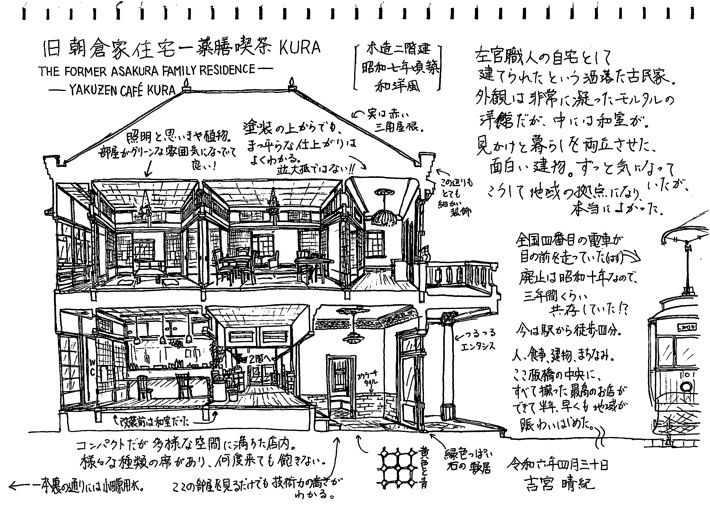 旧朝倉家住宅ー薬膳喫茶KURA
THE FORMER ASAKURA FAMILY RESIDENCE—
—YAKUZEN CAFÉ KURA—
木造二階建
昭和七年頃築
和洋風
左官職人の自宅として
建てられたという洒落た古民家。
外観は非常に凝ったモルタルの
洋館だが、中には和室が。
見かけと暮らしを両立させた、
面白い建物。ずっと気になって
いたが、
こうして地域の拠点になり、
本当によかった。
実は赤い
三角屋根。
照明と思いきや植物。
部屋がグリーンな雰囲気になってて
良い!
塗装の上からでも、
まっ平らな仕上がりは
よくわかる。
並大抵ではない!!
この辺りも
とても
細かい
装飾
全国四番目の電車が
目の前を走っていた(はず)
廃止は昭和十年なので、
三年間くらい
共存していた!?
今は駅から徒歩四分。
人、食事、建物、まちなみ。
ここ板橋の中央に、
すべて揃った最高のお店が
できて半年、早くも地域が
賑わいはじめた。
つるつる
エンタシス
WC
2階へ
カラー
タイル
改装前は和室だった
コンパクトだが多様な空間に満ちた店内。
様々な種類の席があり、何度来ても飽きない。
一本裏の通りには小田原用水。
この部屋を見るだけでも技術力の高さが
わかる。
黄色と青
緑色っぽい
石の敷居
令和六年四月三十日
吉宮晴紀